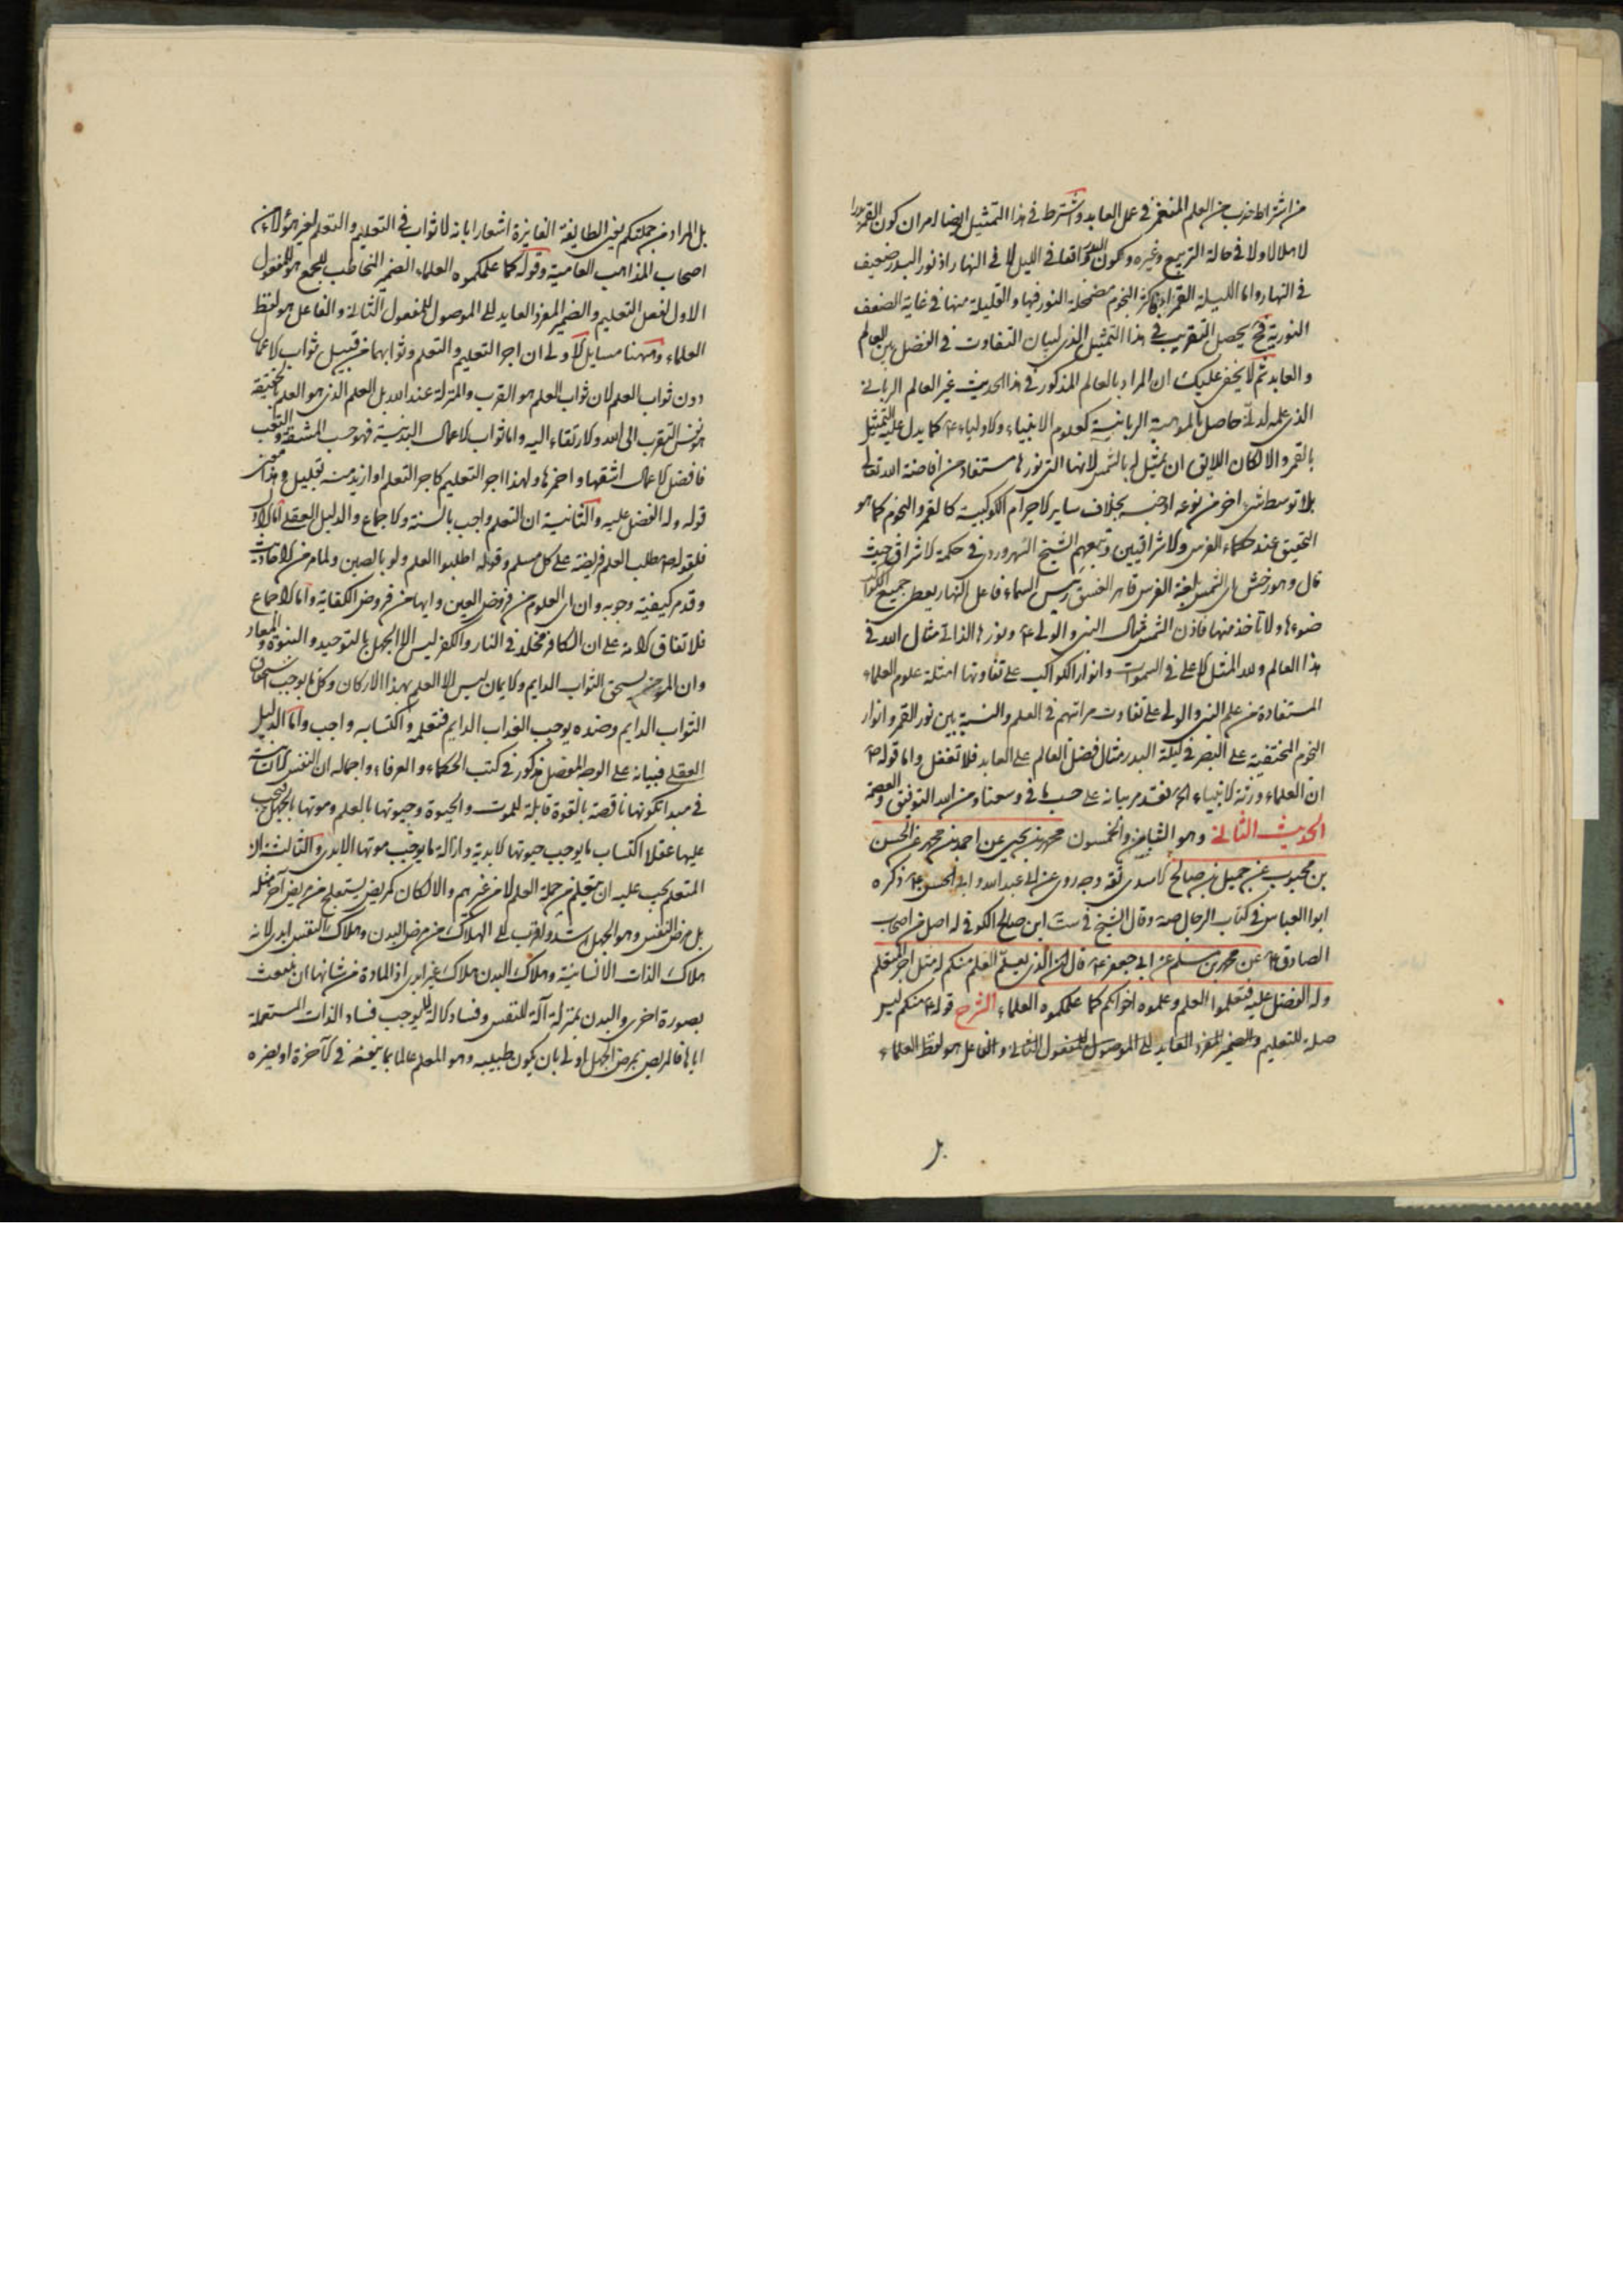 من اشتراط ضرب من العلم المنغمر في عمل العابد واشترط في هذا التمثيل ايضا امران كون القمر بدرا
لا هلالا ولا في حالة التربيع وغيره وكون البدر واقعا في الليل لا في النهار اذ نور البدر ضعيف
في النهار واما الليلة القمراء فاكثر النجوم مضمحلة النور فيها والقليلة منها في غاية الضعف
النورية فح يحصل التقريب في هذا التمثيل الذي لبيان التفاوت في الفضل بين العالم
والعابد ثم لا يخفى عليك ان المراد بالعالم المذكور في هذا الحديث غير العالم الرباني
الذي علمه لدني حاصل بالموهبة الربانية كعلوم الانبياء والاولياء ع كما يدل عليه التمثيل
بالقمر والا لكان اللايق ان يمثل له بالشمس لانها التي نورها مستفاد من افاضة الله تعالى
بلا توسط شئ اخر من نوعه او جنسه بخلاف ساير الاجرام الكوكبية كالقمر والنجوم كما هو
التحقيق عند حكماء الفرس والاشراقيين وتبعهم الشيخ السهروردي في حكمة الاشراق حيث
قال وهورخش اي الشمس بلغة الفرس قاهر الغسق رئيس السماء فاعل النهار يعطى جميع الكواكب
ضوءها ولا تأخذ منها فاذن الشمس مثال النبي والولي ع ونورها الذاتي مثال الله في
هذا العالم ولله المثل الاعلى في السموات وانوار الكواكب على تفاوتها امثلة علوم العلماء
المستفادة من علم النبي والولي على تفاوت مراتبهم في العلم والنسبة بين نور القمر وانوار
النجوم المختفية على البصر في ليلة البدر مثال فضل العالم على العابد فلا تغفل واما قوله ص
ان العلماء ورثة الانبياء اه فقد مر بيانه على حسب ما في وسعنا ومن الله التوفيق والعصمة
الحديث الثاني وهو الثامن والخمسون محمد بن يحيى عن احمد بن محمد عن الحسن
بن محبوب عن جميل بن صالح الاسدي ثقة وجه روى عن ابي عبد الله وابي الحسن ع ذكره
ابو العباس في كتاب الرجال صه وقال الشيخ في ست ابن صالح الكوفي له اصل من اصحاب
الصادق ع عن محمد بن مسلم عن ابي جعفر ع قال ان الذي يعلم العلم منكم له مثل اجر المتعلم
وله الفضل عليه فتعلموا العلم وعلموه اخوانكم كما علمكموه العلماء الشرح قوله ع منكم ليس
صلة للتعليم والضمير المفرد العايد الى الموصول للمفعول الثاني والفاعل هو لفظ العلماء
بل
بل المراد من جملتكم يعني الطايفة الفايزة اشعارا بانه لا ثواب في التعليم والتعلم لغير هؤلاء من
اصحاب المذاهب العامية وقوله كما علمكموه العلماء الضمير التخاطب للجمع هو المفعول
الاول لفعل التعليم والضمير المفرد العايد الى الموصول للمفعول الثاني والفاعل هو لفظ
العلماء وههنا مسايل الاولى ان اجر التعليم والتعلم وثوابهما من قبيل ثواب الاعمال
دون ثواب العلم لان ثواب العلم هو القرب والمنزلة عند الله بل العلم الذي هو العلم بالحقيقة
هو نفس التقرب الى الله والارتقاء اليه واما ثواب الاعمال البدنية فهو حسب المشقة والتعب
فافضل الاعمال اشقها واحمزها ولهذا اجر التعليم كاجر التعلم او ازيد منه بقليل وهذا معنى
قوله وله الفضل عليه والثانية ان التعلم واجب بالسنة والاجماع والدليل العقلي اما الاول
فلقوله ص طلب العلم فريضة على كل مسلم وقوله اطلبوا العلم ولو بالصين ولما مر من الاحاديث
وقد مر كيفية وجوبه وان اي العلوم من فروض العين وايها من فروض الكفاية واما الاجماع
فلاتفاق الامة على ان الكافر مخلد في النار والكفر ليس الا الجهل بالتوحيد والنبوة والمعاد
وان المؤمن يستحق الثواب الدايم والايمان ليس الا العلم بهذا الاركان وكل ما يوجب استحقاق
الثواب الدايم وضده يوجب العذاب الدايم فتعلمه واكتسابه واجب واما الدليل
العقلي فبيانه على الوجه المفصل مذكور في كتب الحكماء والعرفاء واجماله ان النفس كانت
في مبدا تكونها ناقصة بالقوة قابلة للموت والحيوة وحيوتها بالعلم وموتها بالجهل فيجب
عليها عقلا اكتساب ما يوجب حيوتها الابدية وازالة ما يوجب موتها الابدي والثالثة ان
المتعلم يجب عليه ان يتعلم من حملة العلم لا من غيرهم والا لكان كمريض يستعلج من مريض آخر مثله
بل مرض النفس وهو الجهل اشد واقرب الى الهلاك من مرض البدن وهلاك النفس ابدي لانه
هلاك الذات الانسانية وهلاك البدن هلاك غير ابدي اذ المادة من شانها ان تنبعث
بصورة اخرى والبدن بمنزلة آلة للنفس وفساد الالة لا يوجب فساد الذات المستعملة
اياها فالمريض بمرض الجهل اولى بان يكون طبيبه وهو المعلم عالما بما ينفعه في الآخرة او يضره